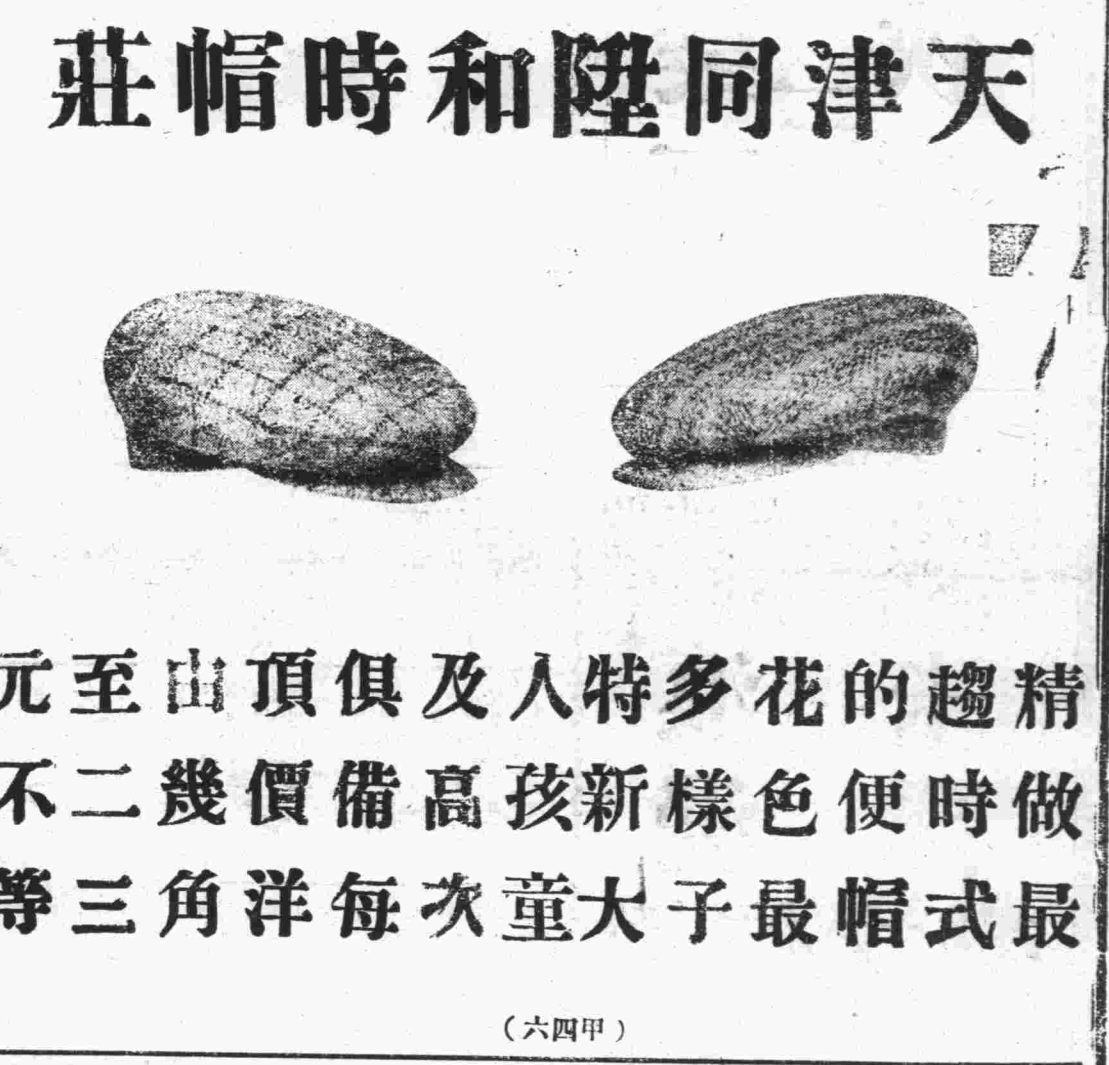 天津同陞和時帽莊
精做最
趨時式
的便帽
花色最
多樣子
特新大
人孩童
及高次
俱備每
頂價洋
由幾角
至二三
元不等
(甲四六)